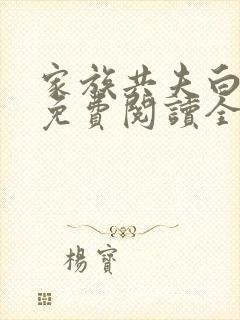 家族共夫白
免費閱讀全
楊寶